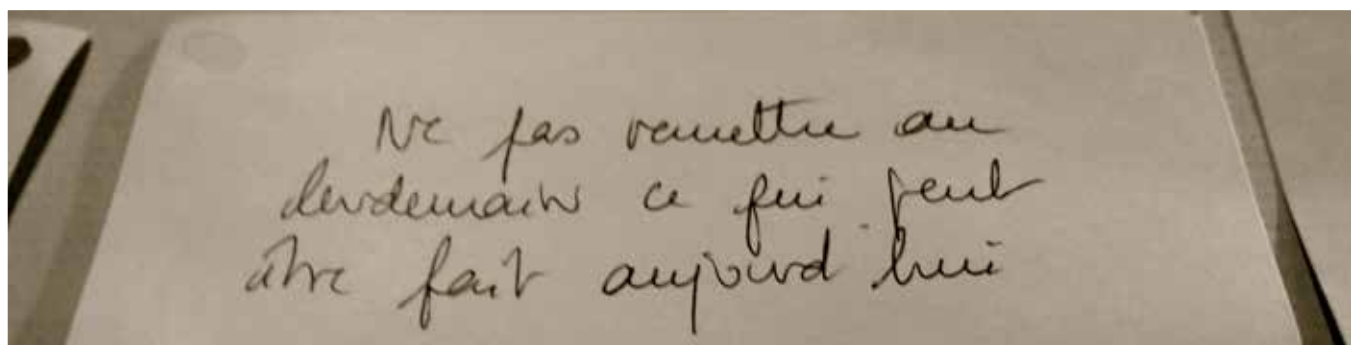 Ne pas remettre au
lendemain ce qui peut
être fait aujourd'hui